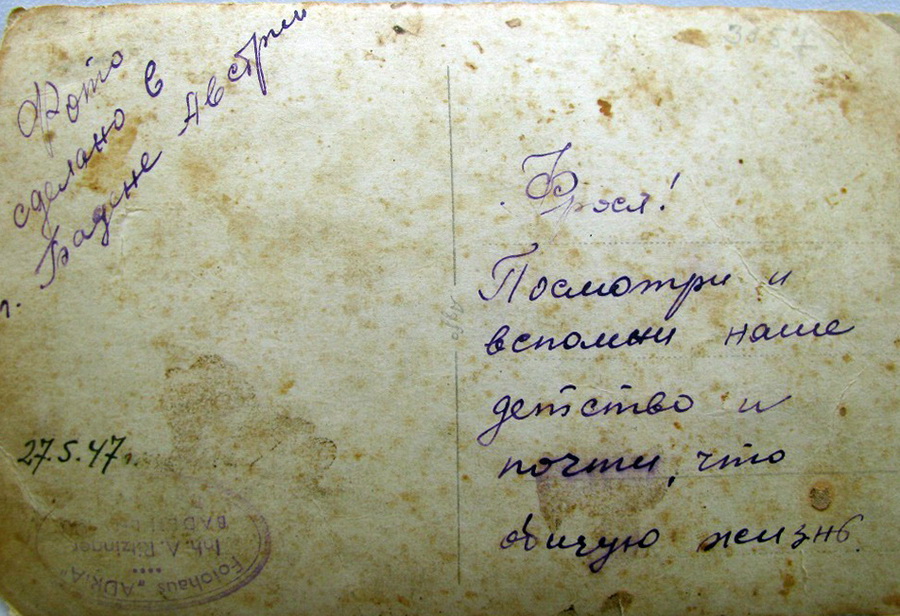 Фото
сделано в
г. Бадене Австрии
27.5.47г.
Фрося!
Посмотри и
вспомни наше
детство и
почти, что
общую жизнь.
Fotohaus "ADRIA"
Inh. A. Ritzinger
BADEN